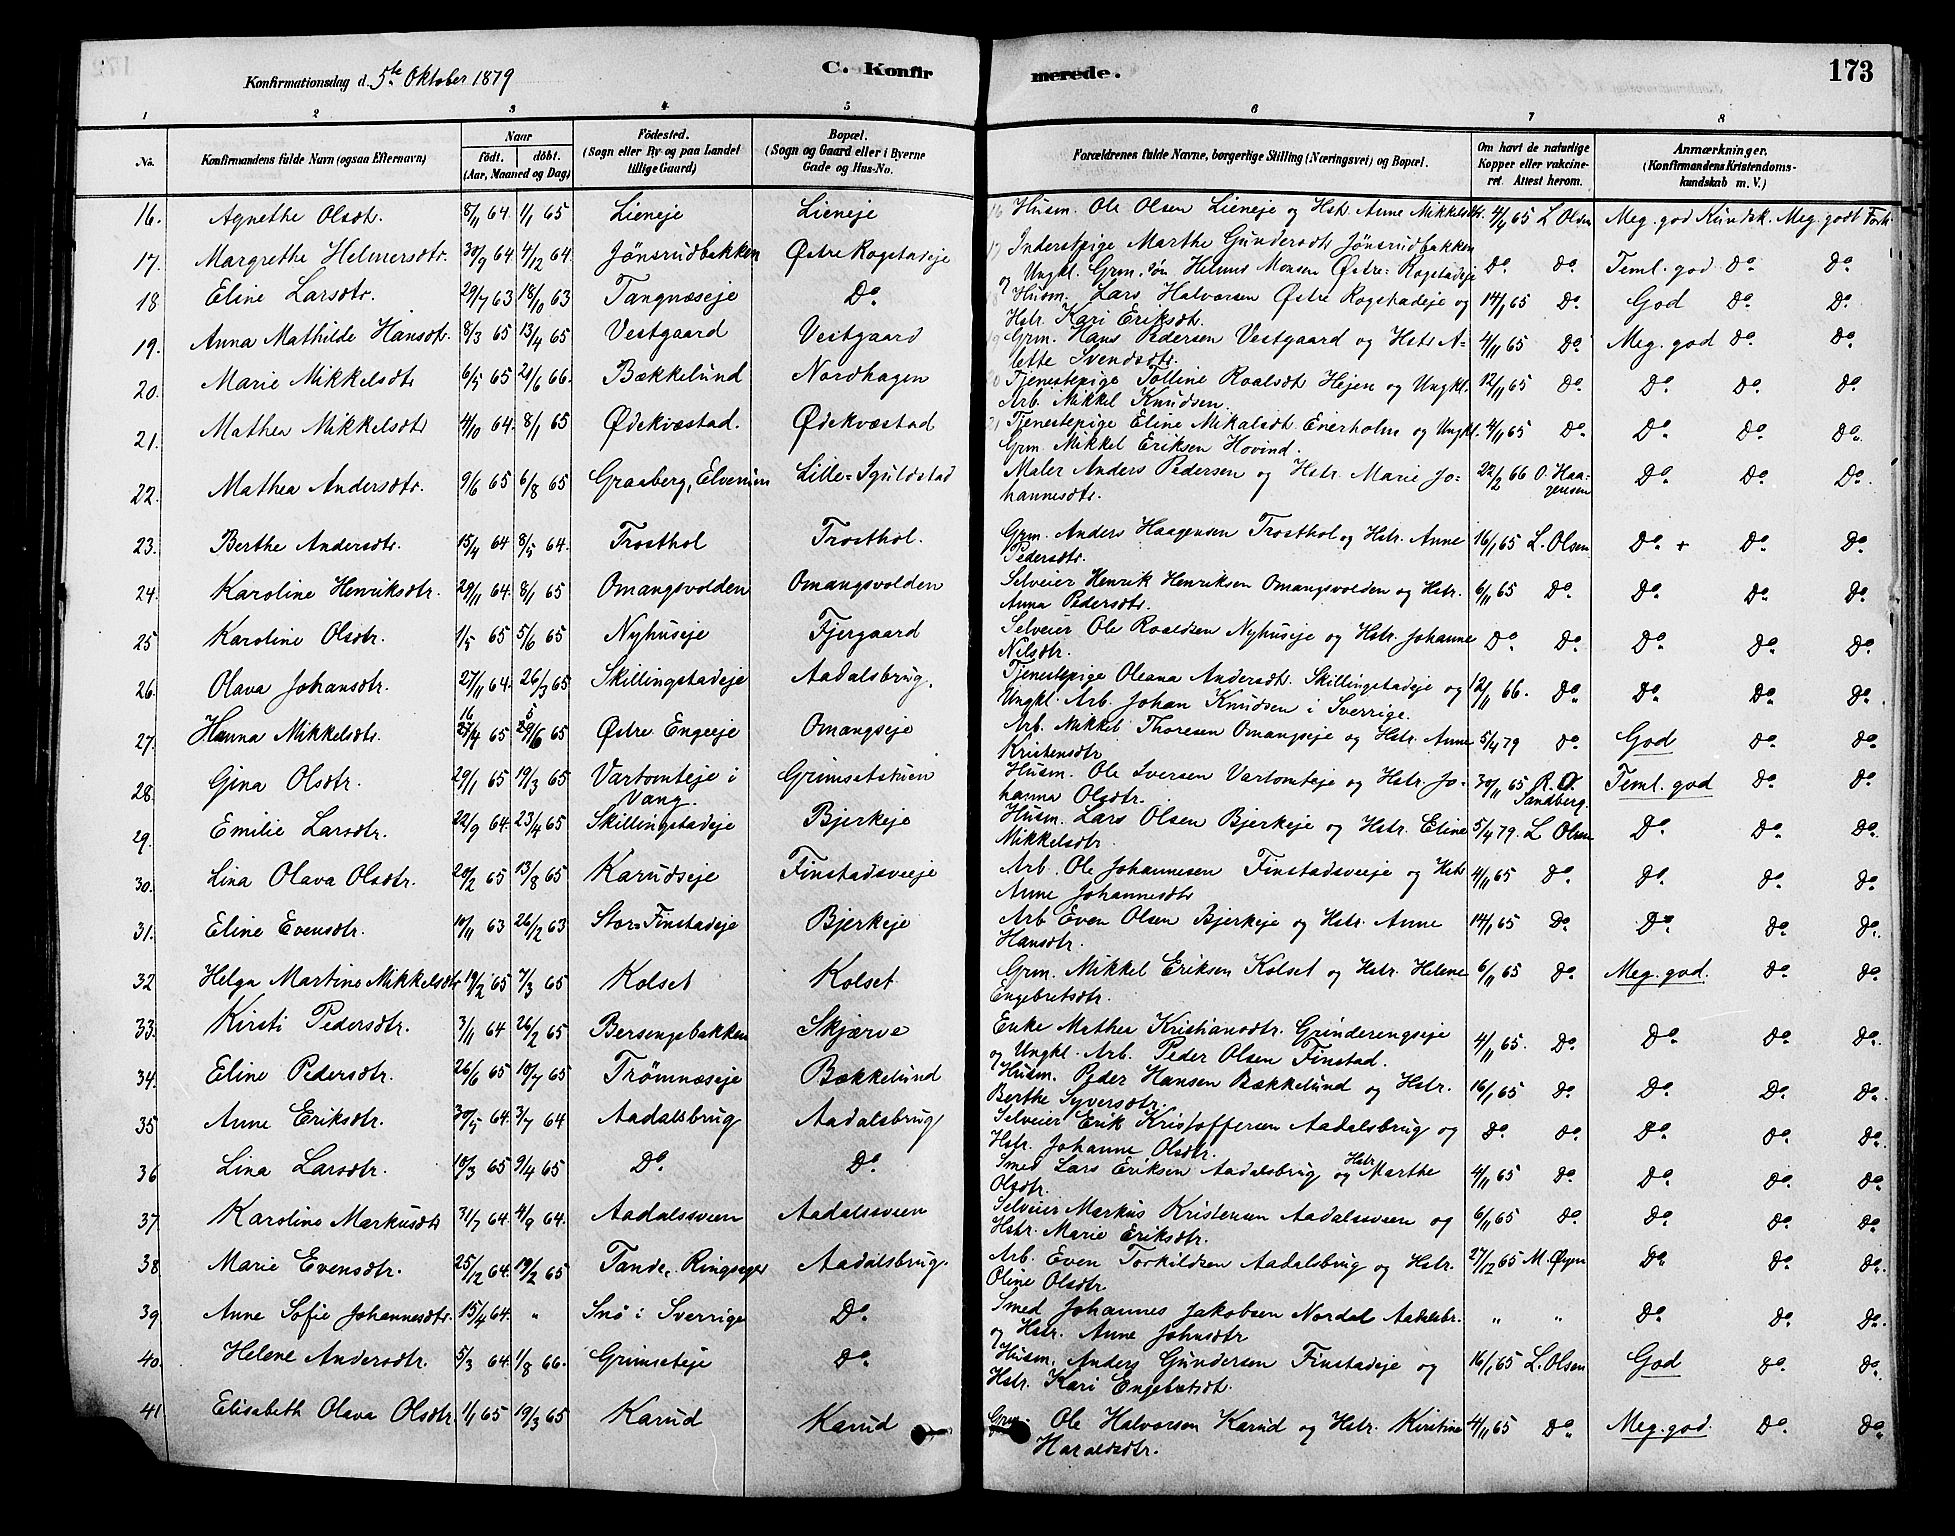 Konfirmationsdag d. 5te Oktober 1879
C. Konfirmerede.
173
1 2 3 4 5 6 7 8
No. Konfirmandens fulde Navn (ogsaa Efternavn) Naar født. døbt. (Aar, Maaned og Dag) Fødested. (Sogn eller By og paa Landet tillige Gaard) Bopæl. (Sogn og Gaard eller i Byerne Gade og Hus-No. Forældrenes fulde Navne, borgerlige Stilling (Næringsvei) og Bopæl. Om havt de naturlige Kopper eller vakcineret. Attest herom. Anmærkninger. (Konfirmandens Kristendomskundskab m. V.)
16. Agnethe Olsdtr. 8/11 64. 1/1 65 Lieneje Lieneje Husm. Ole Olsen Lieneje og Hstr. Anne Mikkelsdtr. 4/4 65 L Olsen Meg. god Kundsk. Meg. godt Forh.
17. Margrethe Helmersdtr. 30/9 64 4/12 64. Jønsrudbakken Østre Rogstadeje Inderstpige Marthe Gundersdtr Jønsrudbakken
og Ungkl. Grm. søn Helmer Monsen Østre Rogstadeje Do. Do. Teml. god Do. Do.
18 Eline Larsdtr. 29/7 63 18/10 63 Tangnæseje Do. Husm. Lars Halvorsen Østre Rogstadeje og
Hstr. Kari Eriksdtr. 14/1 65 Do. God Do. Do.
19. Anna Mathilde Hansdtr. 8/3 65 13/4 65 Vestgaard Vestgaard Grm. Hans Pedersen Vestgaard og Hstr A-
lette Svendsdtr. 4/11 65 Do. Meg. god Do. Do.
20. Marie Mikkelsdtr 6/5 65 24/6 66. Bækkelund Nordhagen Tjenestepige Tolline Roalsdt. Hejen og Ungkl.
Arb. Mikkel Knudsen. 12/11 65 Do. Do. Do. Do.
21. Mathea Mikkelsdtr 4/10 64. 8/1 65 Ødekvæstad. Ødekvæstad Tjenestepige Eline Mikalsdt. Enerholm og Ungkl.
Grm. Mikkel Eriksen Hovind. 4/11 65 Do. Do. Do. Do.
22. Mathea Andersdtr. 9/6 65 6/8 65 Graaberg, Elverum Lille-Iguldstad Maler Anders Pedersen og Hstr. Marie Jo-
hannesdtr. 22/2 66 O. Haagensen Do. Do. Do.
23. Berthe Andersdtr. 15/4 64 8/5 64. Trosthol Trosthol. Grm. Anders Haagensen Trosthol og Hstr. Anne
Pedersdtr. 16/1 65 L. Olsen Do. + Do. Do.
24. Karoline Henriksdtr. 29/11 64. 8/1 65 Omangsvolden Omangsvolden Selveier Henrik Henriksen Omangsvolden og Hstr.
Anna Pedersdtr. 6/11 65 Do. Do. Do. Do.
25 Karoline Olsdtr. 1/5 65 5/6 65 Nyhuseje Fjergaard Selveier Ole Roaldsen Nyhuseje og Hstr. Johanne
Nilsdtr. Do. Do. Do. Do. Do.
26. Olava Johansdtr. 27/11 64. 26/3 65 Skillingstadeje Aadalsbrug. Tjenestepige Oleana Andersdtr. Skillingstadeje og
Ungkl. Arb. Johan Knudsen i Sverrige. 12/11 66. Do. Do. Do. Do.
27. Hanna Mikkelsdtr. 65 65 Østre Engeeje Omangseje Arb. Mikkel Thoresen Omangseje og Hstr. Anne
Kristensdtr 5/4 79 Do. God Do. Do.
28. Gina Olsdtr. 29/1 65 19/3 65 Vartomteje i Vang. Grimsetstuen Husm. Ole Iversen Vartomteje og Hstr. Jo-
hanna Olsdtr. 30/11 65 R. O. Sandberg. Teml. god Do. Do.
29. Emilie Larsdtr. 22/9 64. 23/4 65 Skillingstadeje Bjerkeje Husm. Lars Olsen Bjerkeje og Hstr. Eline
Mikkelsdtr. 5/4 79. L Olsen Do. Do. Do.
30. Lina Olava Olsdtr. 20/2 65 13/8 65 Karudseje Finstadsveeje Arb. Ole Johannesen Finstadsveeje og Hstr
Anne Johannesdtr 4/11 65 Do. Do. Do. Do.
31. Eline Evensdtr. 10/11 63 26/12 63 Stor-Finstadeje Bjerkeje Arb Even Olsen Bjerkeje og Hstr. Anne
Hansdtr. 14/1 65 Do. Do. Do. Do.
32 Helga Martine Mikkelsdtr 19/2 65 7/3 65 Kolset Kolset Grm. Mikkel Eriksen Kolset og Hstr. Helene
Engebretsdtr. 6/11 65 Do. Meg. god. Do. Do.
33. Kirsti Pedersdtr. 3/11 64 26/2 65 Bersengsbakken Skjærve Enke Mathea Kristiansdtr. Grinderengseje
og Ungkl. Arb. Peder Olsen Finstad. 4/11 65. Do. Do. Do. Do.
34. Eline Pedersdtr. 26/6 65 10/7 65 Trømnæseje Bækkelund Husm. Peder Hansen Bækkelund og Hstr.
Berthe Syversdtr. 16/1 65 Do. Do. Do. Do.
35 Anne Eriksdtr. 30/5 64. 3/7 64 Aadalsbrug Aadalsbrug Selveier Erik Kristoffersen Aadalsbrug og
Hstr. Johanne Olsdtr. Do. Do. Do. Do. Do.
36 Lina Larsdtr. 10/3 65 9/4 65 Do. Do. Smed Lars Eriksen Aadalsbrug og Hstr Marthe
Olsdtr. 4/11 65 Do. Do. Do. Do.
37. Karoline Markusdtr 31/7 64. 4/9 64. Aadalssveen Aadalssveen Selveier Markus Kristensen Aadalssveen og
Hstr. Marie Eriksdtr. 6/11 65 Do. Do. Do. Do.
38 Marie Evensdtr. 25/12 64. 19/2 65 Tande, Ringsager Aadalsbrug. Arb. Even Torkildsen Aadalsbrug og Hstr.
Oline Olsdtr 27/12 65 M. Øyen Do. Do. Do.
39 Anne Sofie Johannesdtr. 15/4 64. „ Snö i Sverrige Do. Smed Johannes Jakobsen Nordal Aadalsbr.
og Hstr. Anne Johnsdtr „ „ Do. Do. Do.
40. Helene Andersdtr. 5/3 64. 1/8 66. Grimseteje Do. Husm. Anders Gundersen Finstadeje og
Hstr. Kari Engebretsdt. 16/1 65 L. Olsen God Do. Do.
41 Elisabeth Olava Olsdtr. 1/1 65 19/3 65 Karud Karud Grm. Ole Halvorsen Karud og Hstr. Kirstine
Haraldsdtr. 4/11 65 Do. Meg. god. Do. Do.